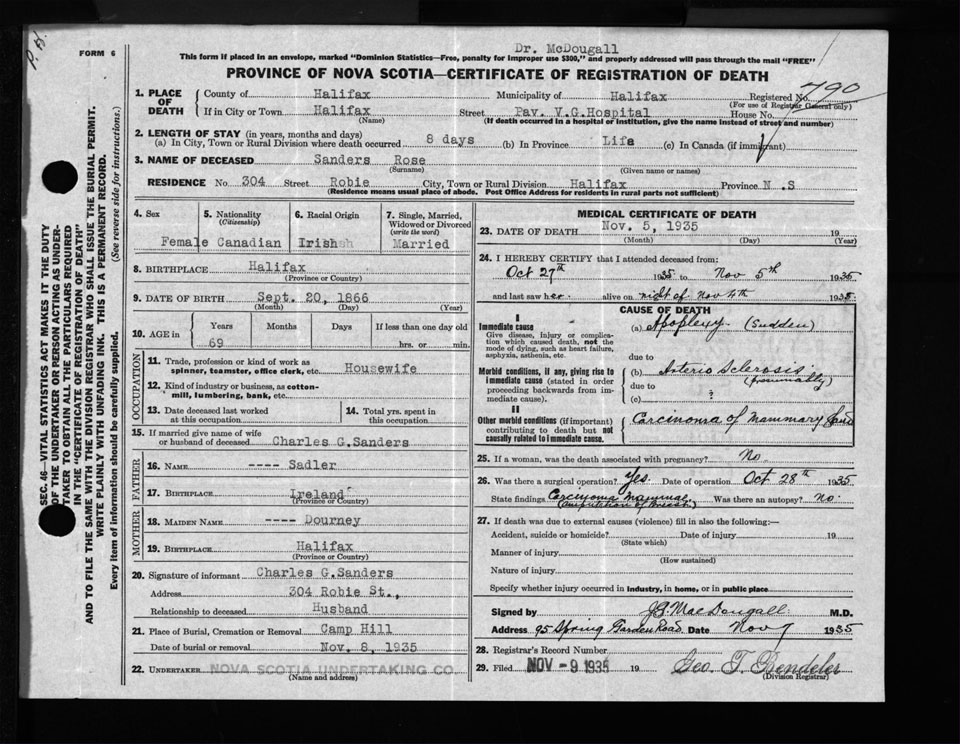 P. H.
FORM 6
Dr. McDougall
This form if placed in an envelope, marked "Dominion Statistics—Free, penalty for improper use $300," and properly addressed will pass through the mail "FREE"
PROVINCE OF NOVA SCOTIA—CERTIFICATE OF REGISTRATION OF DEATH
790
1. PLACE OF DEATH County of Halifax Municipality of Halifax Registered No.
(For use of Registrar General only)
If in City or Town Halifax Street Pav. V.G.Hospital House No.
(Name) (If death occurred in a hospital or institution, give the name instead of street and number)
2. LENGTH OF STAY (in years, months and days)
(a) In City, Town or Rural Division where death occurred 8 days (b) In Province Life (c) In Canada (if immigrant)
3. NAME OF DECEASED Sanders Rose
(Surname) (Given name or names)
RESIDENCE No. 304 Street Robie City, Town or Rural Division Halifax Province N.S
(Residence means usual place of abode. Post Office Address for residents in rural parts not sufficient)
4. Sex 5. Nationality (Citizenship) 6. Racial Origin 7. Single, Married, Widowed or Divorced (write the word)
Female Canadian Irish Married
8. BIRTHPLACE Halifax
(Province or Country)
9. DATE OF BIRTH Sept. 20, 1866
(Month) (Day) (Year)
10. AGE in Years Months Days If less than one day old
69 hrs. or min.
OCCUPATION
11. Trade, profession or kind of work as spinner, teamster, office clerk, etc. Housewife
12. Kind of industry or business, as cotton-mill, lumbering, bank, etc.
13. Date deceased last worked at this occupation
14. Total yrs. spent in this occupation
15. If married give name of wife or husband of deceased Charles G.Sanders
FATHER
16. NAME ---- Sadler
17. BIRTHPLACE Ireland
(Province or Country)
MOTHER
18. MAIDEN NAME ---- Dourney
19. BIRTHPLACE Halifax
(Province or Country)
20. Signature of informant Charles G.Sanders
Address 304 Robie St.,
Relationship to deceased Husband
21. Place of Burial, Cremation or Removal Camp Hill
Date of burial or removal Nov. 8, 1935
22. UNDERTAKER NOVA SCOTIA UNDERTAKING CO
(Name and address)
MEDICAL CERTIFICATE OF DEATH
23. DATE OF DEATH Nov. 5, 1935 19
(Month) (Day) (Year)
24. I HEREBY CERTIFY that I attended deceased from:
Oct 27th 1935 to Nov 5th 1935
and last saw her alive on night of Nov 4th 1935
CAUSE OF DEATH
I
Immediate cause
Give disease, injury or complication which caused death, not the mode of dying, such as heart failure, asphyxia, asthenia, etc.
(a) Apoplexy (Sudden)
due to
Morbid conditions, if any, giving rise to immediate cause (stated in order proceeding backwards from immediate cause).
(b) Arterio Sclerosis.
(presumably)
due to
(c) ?
II
Other morbid conditions (if important) contributing to death but not causally related to immediate cause.
Carcinoma of Mammary Gland
25. If a woman, was the death associated with pregnancy? No
26. Was there a surgical operation? Yes. Date of operation Oct 28th 1935
State findings Carcinoma Mammae Was there an autopsy? No.
(Amputation of Breast)
27. If death was due to external causes (violence) fill in also the following:—
Accident, suicide or homicide? Date of injury 19
(State which)
Manner of injury
(How sustained)
Nature of injury
Specify whether injury occurred in industry, in home, or in public place
Signed by J.G. MacDougall. M.D.
Address 95 Spring Garden Road Date Nov 7 1935
28. Registrar's Record Number
29. Filed NOV -9 1935 19
(Division Registrar)
SEC. 46—VITAL STATISTICS ACT MAKES IT THE DUTY
OF THE UNDERTAKER OR PERSON ACTING AS UNDER-
TAKER TO OBTAIN ALL THE PARTICULARS REQUIRED
IN THE "CERTIFICATE OF REGISTRATION OF DEATH"
AND TO FILE THE SAME WITH THE DIVISION REGISTRAR WHO SHALL ISSUE THE BURIAL PERMIT.
WRITE PLAINLY WITH UNFADING INK. THIS IS A PERMANENT RECORD.
Every item of information should be carefully supplied. (See reverse side for instructions.)